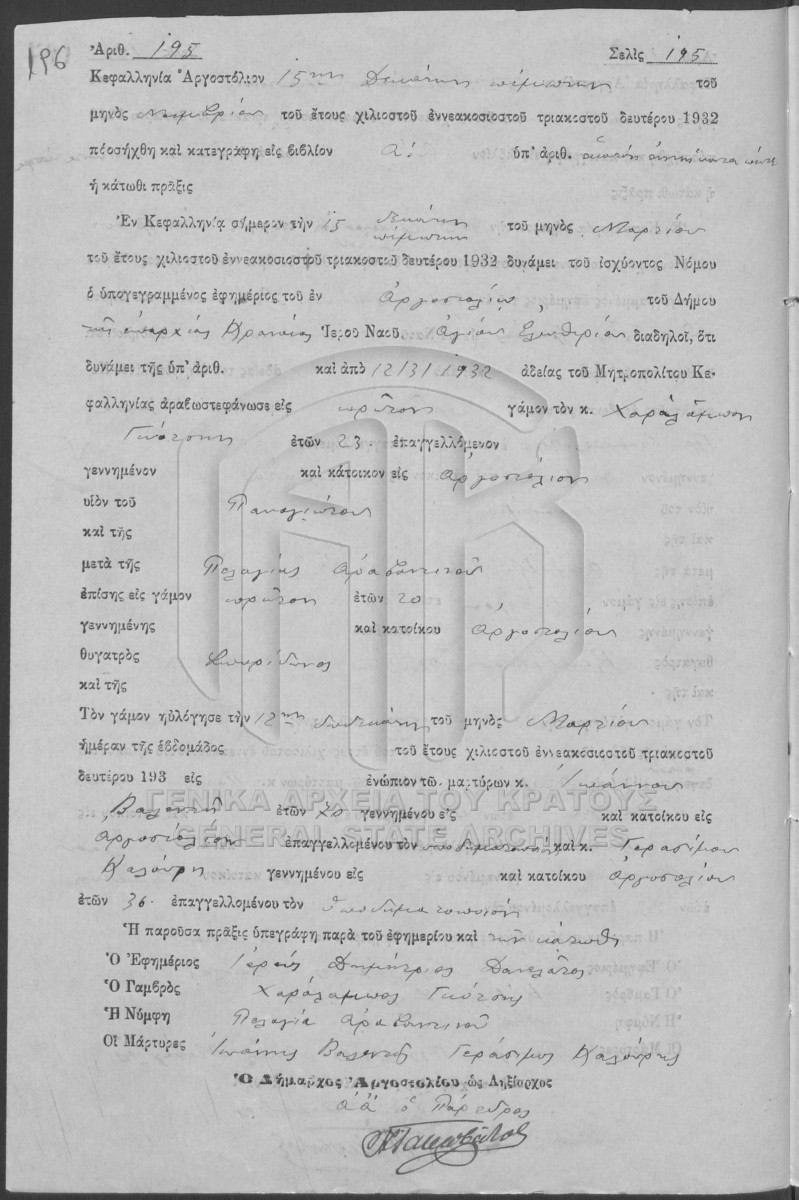 196
Ἀριθ. 195 Σελὶς 195
Κεφαλληνία Ἀργοστόλιον 15ην Δεκάτην πέμπτην τοῦ
μηνὸς Νοεμβρίου τοῦ ἔτους χιλιοστοῦ ἐννεακοσιοστοῦ τριακοστοῦ δευτέρου 1932
πέοσήχθη καὶ κατεγράφη εἰς βιβλίον Α! ὑπ' ἀριθ. ἑκατὸν ἐννενήκοντα πέντε
ἡ κάτωθι πρᾶξις
Ἐν Κεφαλληνίᾳ σήμερον τὴν 15 δεκάτην πέμπτην τοῦ μηνὸς Μαρτίου
τοῦ ἔτους χιλιοστοῦ ἐννεακοσιοστοῦ τριακοστοῦ δευτέρου 1932 δυνάμει τοῦ ἰσχύοντος Νόμου
ὁ ὑπογεγραμμένος ἐφημέριος τοῦ ἐν Ἀργοστολίῳ τοῦ Δήμου
τῆς ἐπαρχίας Κραναίας Ἱεροῦ Ναοῦ Ἁγίου Ἐλευθερίου διαδηλοῖ, ὅτι
δυνάμει τῆς ὑπ' ἀριθ. καὶ ἀπὸ 12/3/1932 ἀδείας τοῦ Μητροπολίτου Κε-
φαλληνίας ἀραβωστεφάνωσε εἰς πρῶτον γάμον τὸν κ. Χαράλαμπον
Γκότσην ἐτῶν 23. ἐπαγγελλόμενον
γεννημένον καὶ κάτοικον εἰς Ἀργοστόλιον
υἱὸν τοῦ Παναγιώτου
καὶ τῆς
μετὰ τῆς Πελαγίας Ἀραβαντινοῦ
ἐπίσης εἰς γάμον πρῶτον ἐτῶν 20
γεννημένης καὶ κατοίκου Ἀργοστολίου
θυγατρὸς Σπυρίδωνος
καὶ τῆς
Τὸν γάμον ηὐλόγησε τὴν 12ην δωδεκάτην τοῦ μηνὸς Μαρτίου
ἡμέραν τῆς ἑβδομάδος τοῦ ἔτους χιλιοστοῦ ἐννεακοσιοστοῦ τριακοστοῦ
δευτέρου 193 εἰς ἐνώπιον τῶν μαρτύρων κ. Ἰωάννου
Βαλεντῆ ἐτῶν 20 γεννημένου εἰς καὶ κατοίκου εἰς
Ἀργοστόλιον ἐπαγγελλομένου τὸν ὑποδηματοποιὸν καὶ κ. Γερασίμου
Καλούρη γεννημένου εἰς καὶ κατοίκου Ἀργοστολίου
ἐτῶν 36. ἐπαγγελλομένου τὸν ὑποδηματοποιόν
Ἡ παροῦσα πρᾶξις ὑπεγράφη παρὰ τοῦ ἐφημερίου καὶ τῶν κάτωθι
Ὁ Ἐφημέριος Ἱερεὺς Δημήτριος Δανελάτος
Ὁ Γαμβρὸς Χαράλαμπος Γκότσης
Ἡ Νύμφη Πελαγία Ἀραβαντινοῦ
Οἱ Μάρτυρες Ἰωάννης Βαλεντῆς Γεράσιμος Καλούρης
Ὁ Δήμαρχος Ἀργοστολίου ὡς Ληξίαρχος
ἀ ἀ ὁ Πάρεδρος
ΓΕΝΙΚΑ ΑΡΧΕΙΑ ΤΟΥ ΚΡΑΤΟΥΣ
GENERAL STATE ARCHIVES